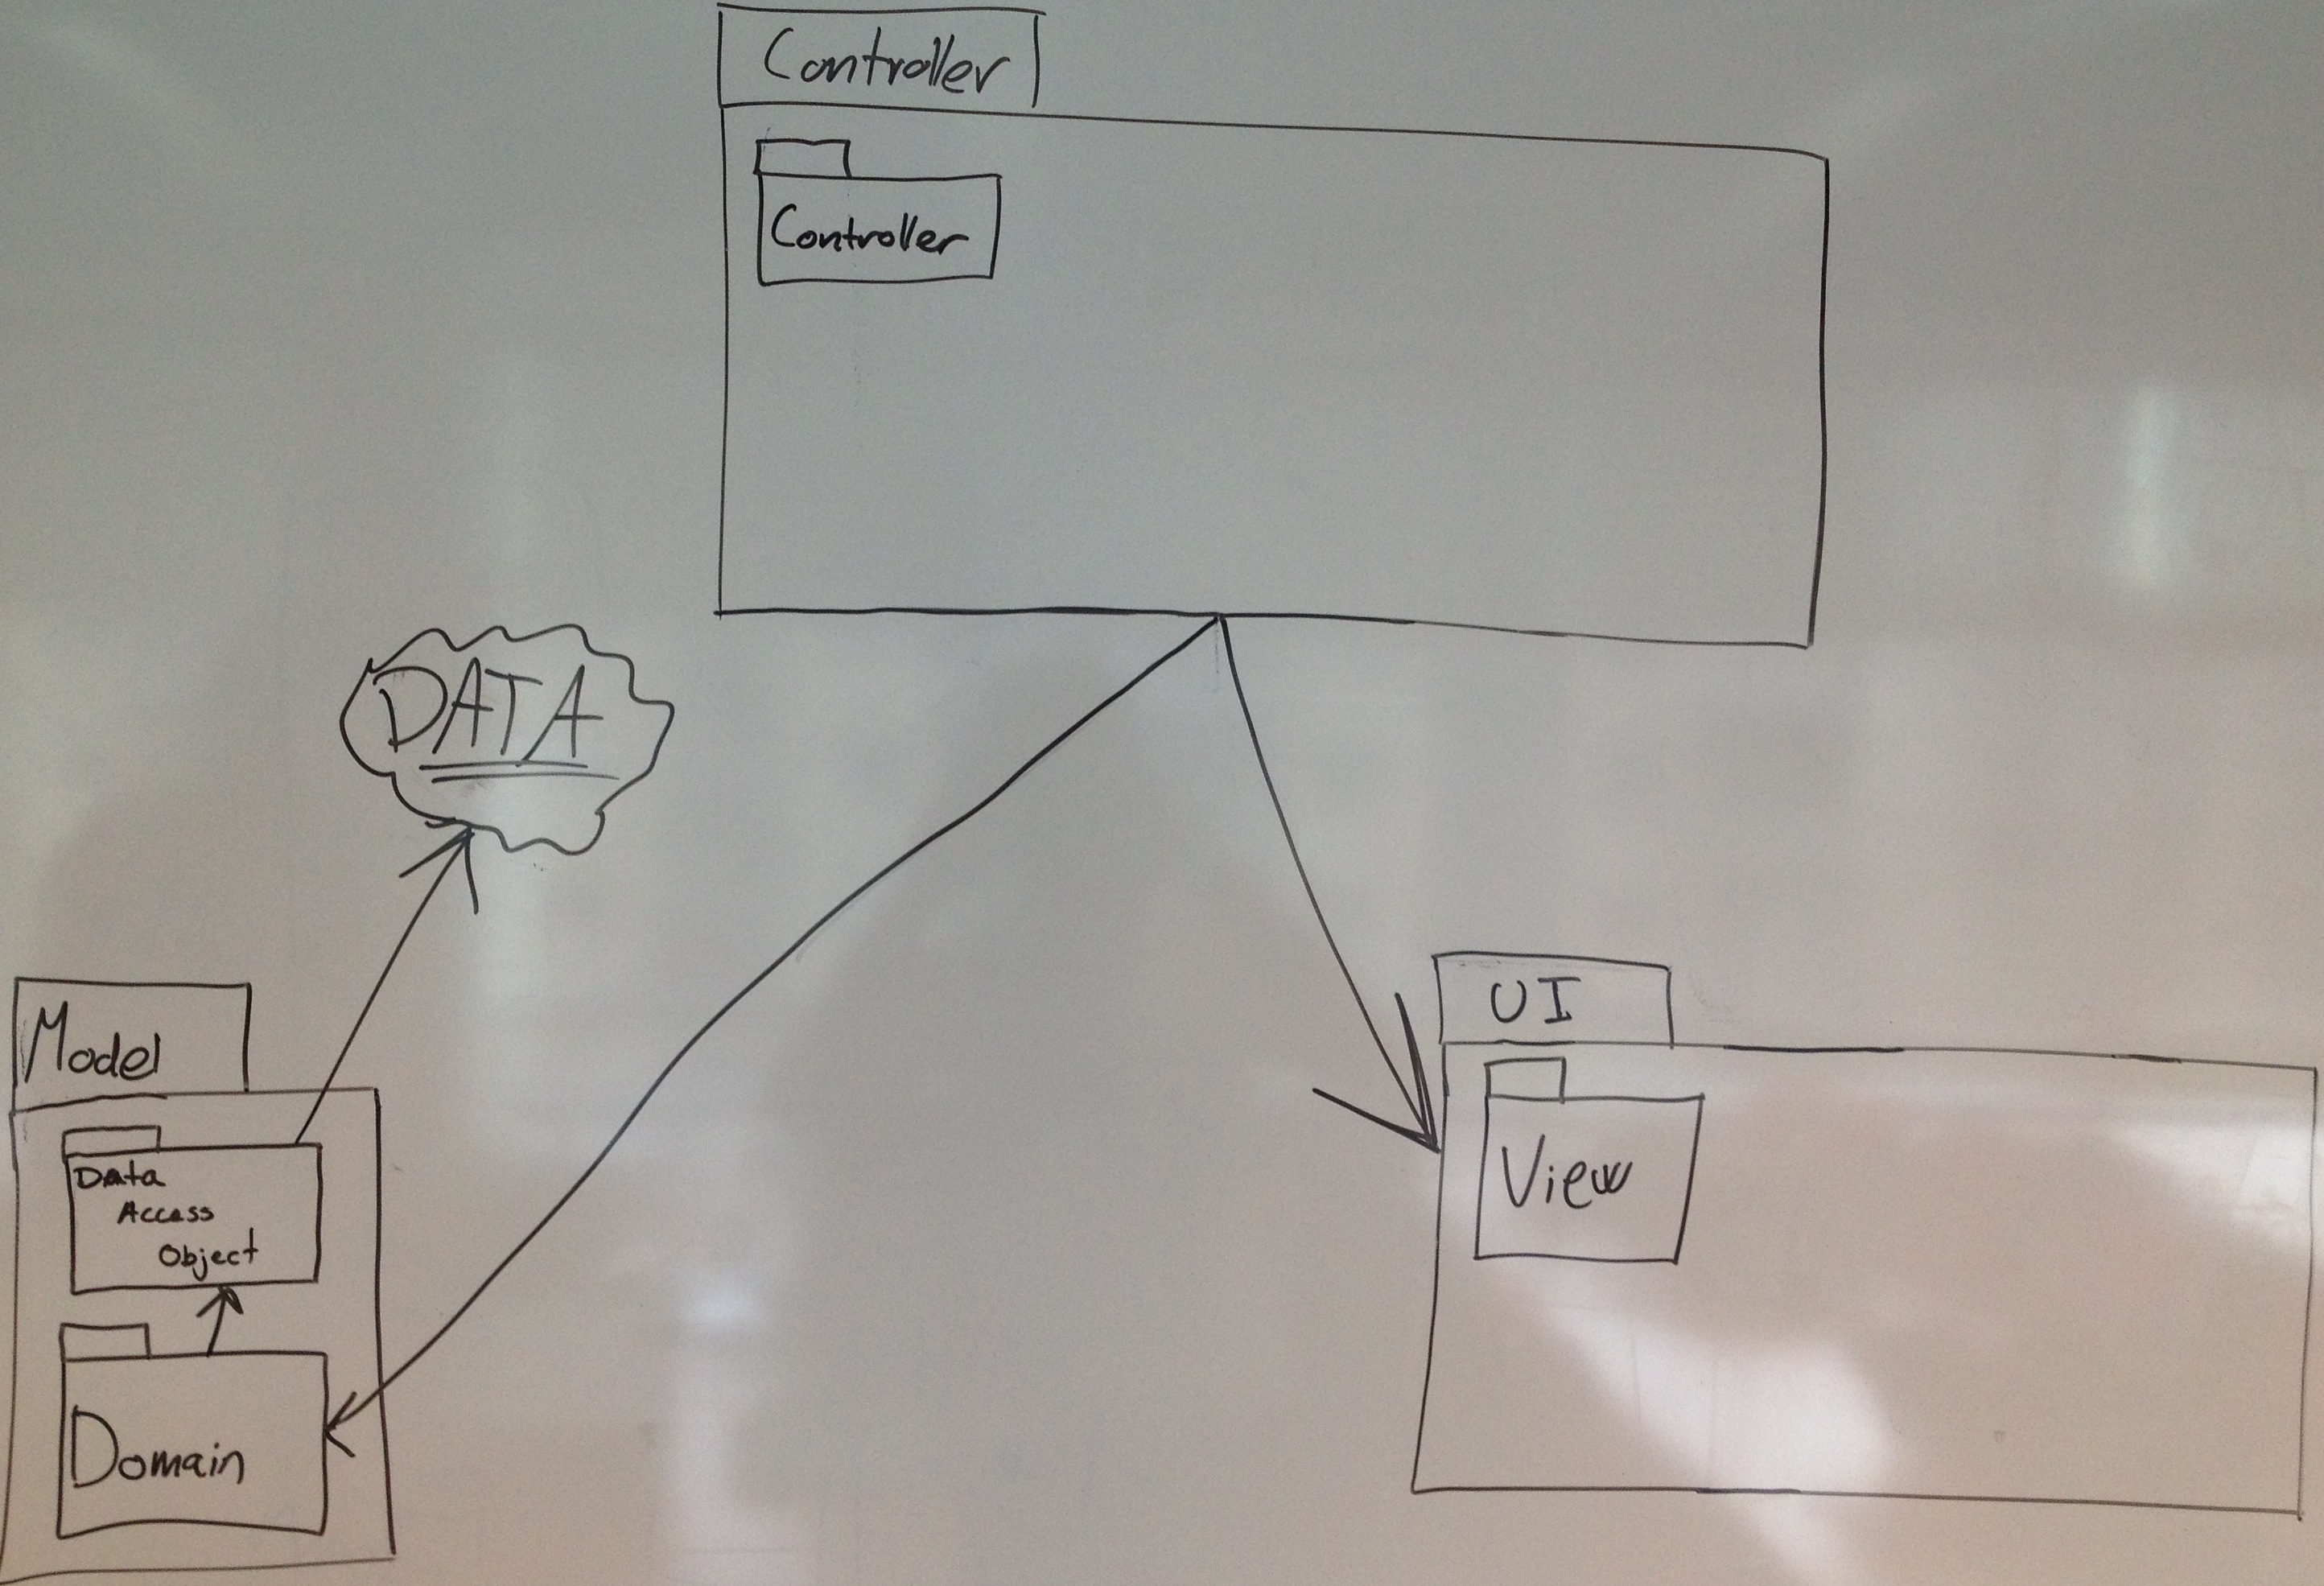 Controller
Controller
DATA
Model
Data
Access
Object
Domain
UI
View